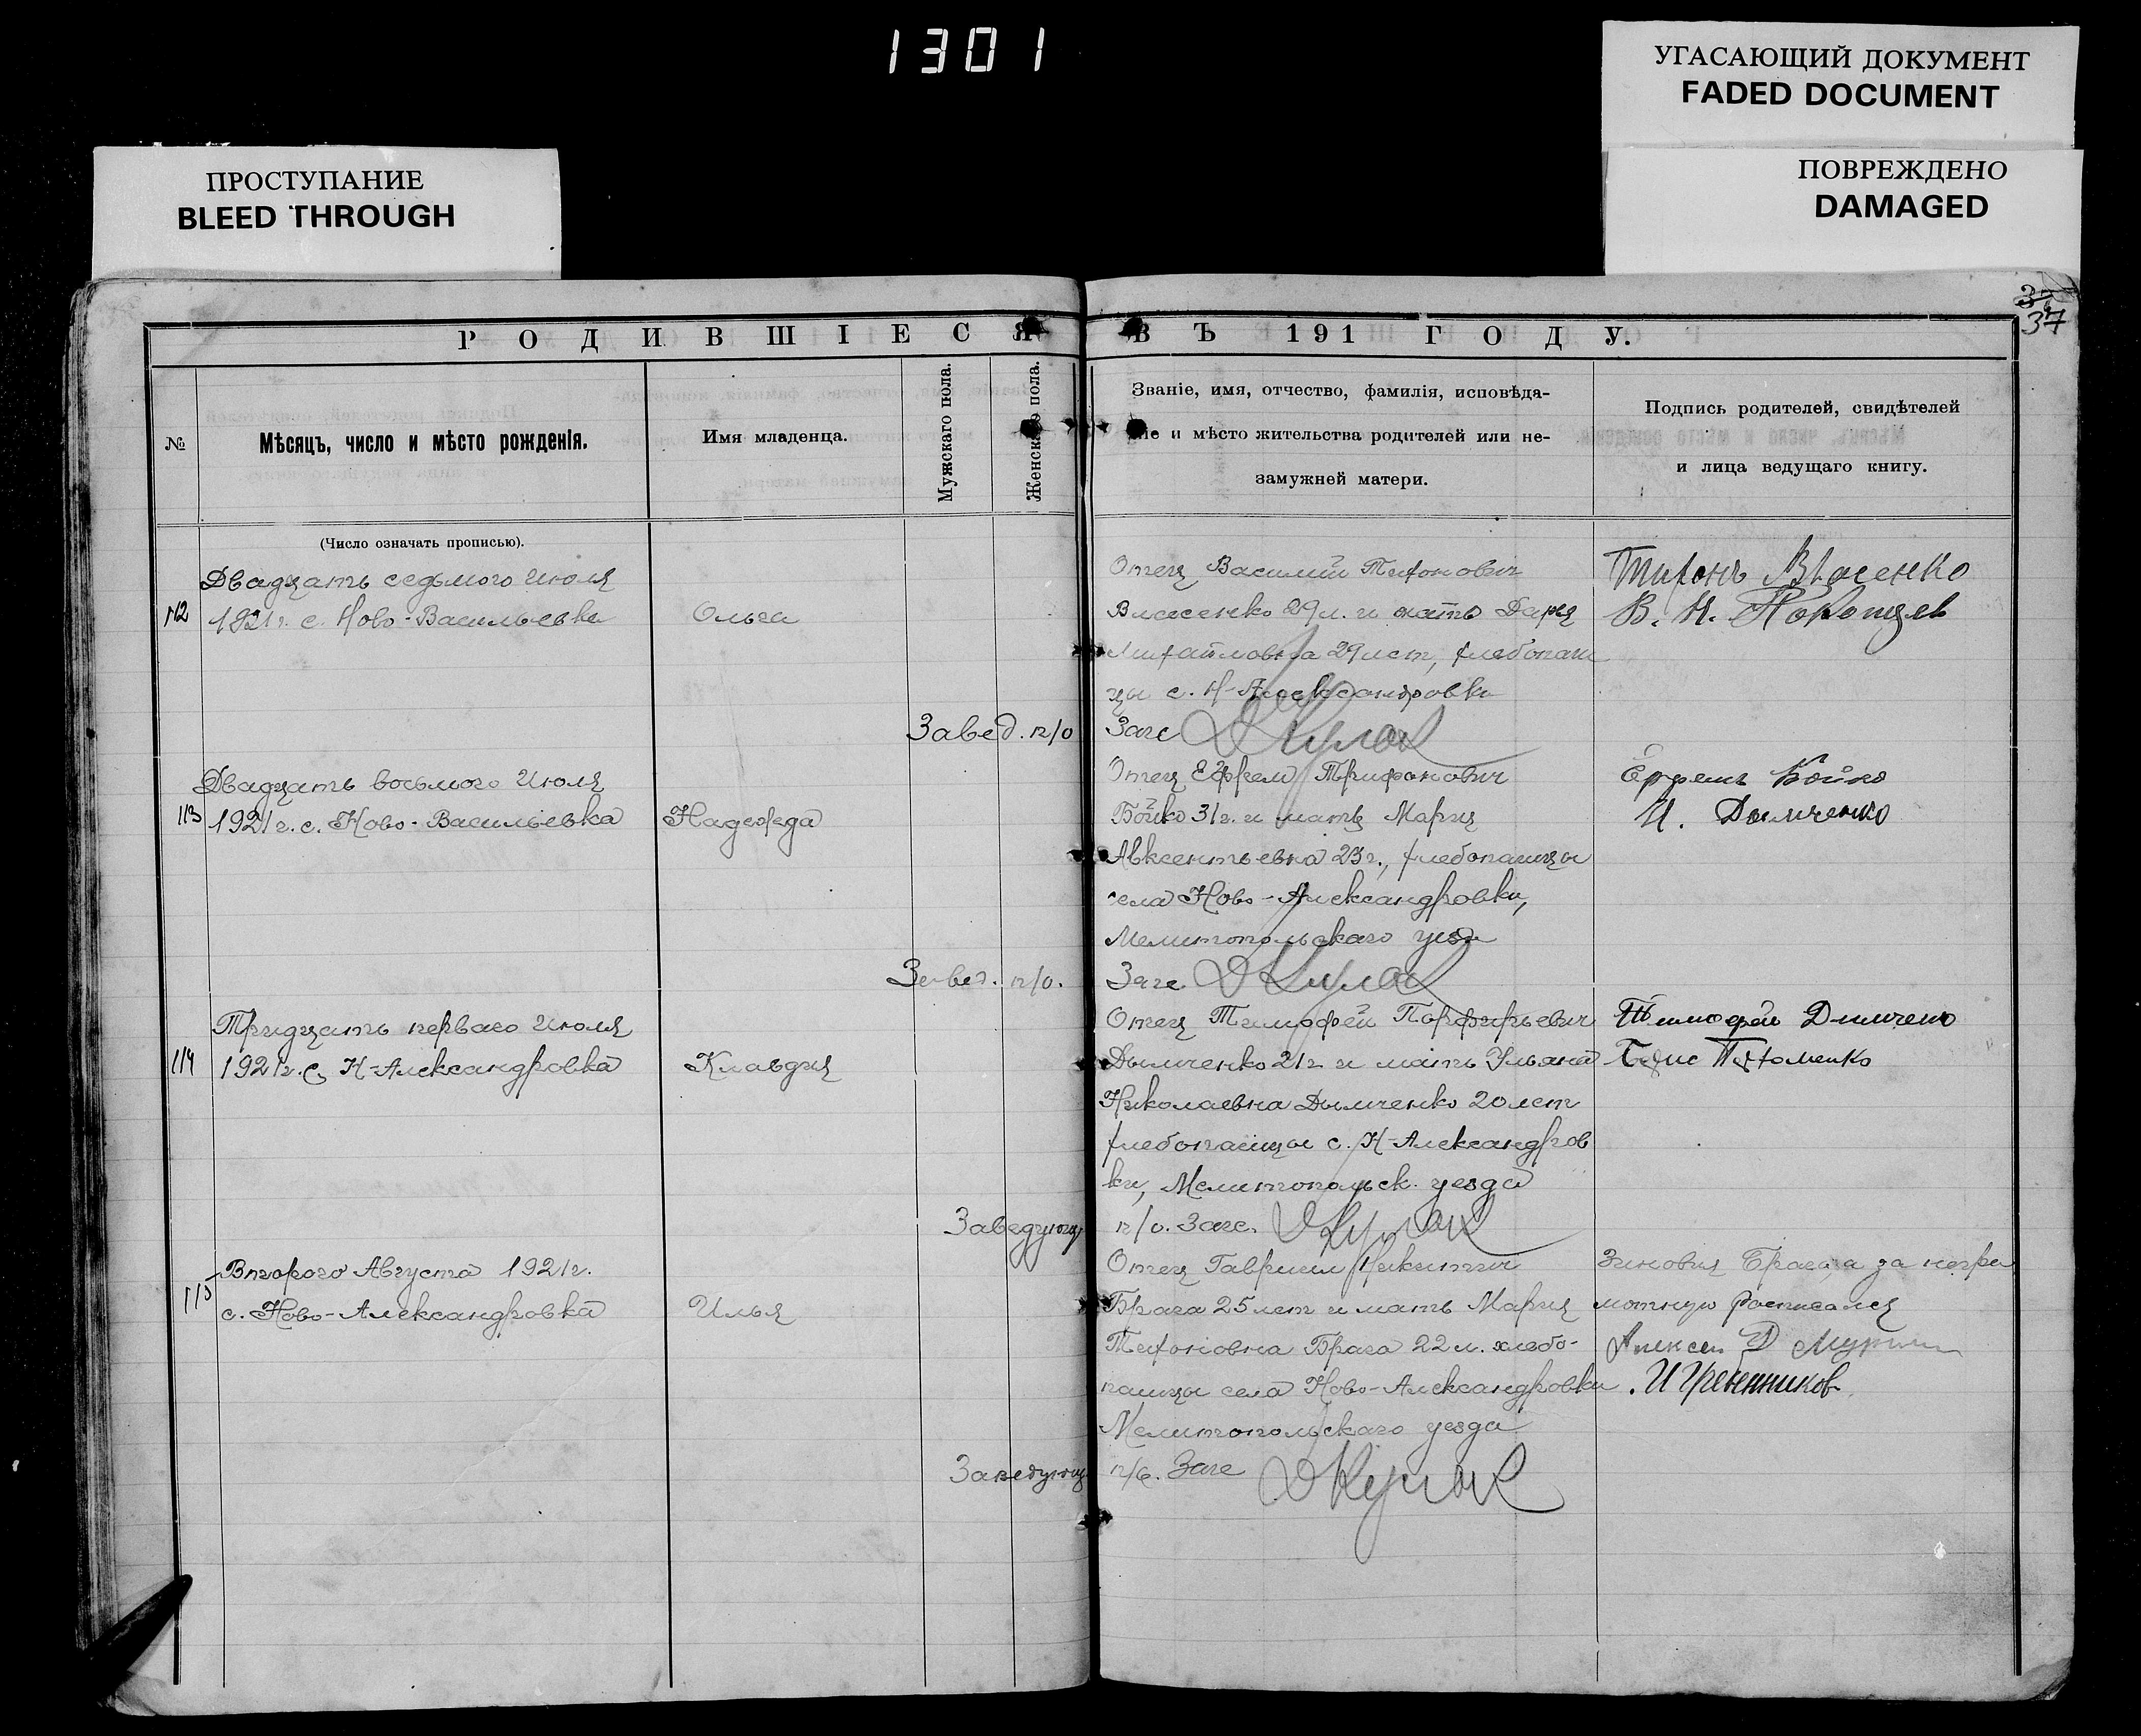 1301
УГАСАЮЩИЙ ДОКУМЕНТ
FADED DOCUMENT
ПРОСТУПАНИЕ
BLEED THROUGH
ПОВРЕЖДЕНО
DAMAGED
37
РОДИВШІЕСЯ ВЪ 191 ГОДУ.
№
Мѣсяцъ, число и мѣсто рожденія.
Имя младенца.
Мужскаго пола.
Женскаго пола.
Званіе, имя, отчество, фамилія, исповѣда-
ніе и мѣсто жительства родителей или не-
замужней матери.
Подпись родителей, свидѣтелей
и лица ведущаго книгу.
(Число означать прописью).
Двадцать седьмого Июля
112 1921 г. с. Ново-Васильевка
Ольга
Отец Василий Тихонович
Власенко 29 л. и мать Дарья
Михайловна 29 лет, хлебопаш
цы с. Н-Александровки
Тихонъ Власенко
В. И.
Завед. п/о Загс Кулак
Двадцать восьмого Июля
113 1921 г. с. Ново-Васильевка
Надежда
Отец Ефрем Трифонович
Бойко 31 г. и мать Мария
Авксентьевна 23 г., хлебопашцы
села Ново-Александровки,
Мелитопольскаго уезда
Ефремъ Бойко
И. Дымченко
Завед. п/о. Загс Кулак
Тридцать перваго Июля
114 1921 г. с. Н-Александровка
Клавдия
Отец Тимофей Порфирьевич
Дымченко 21 г и мать Ульяна
Николаевна Дымченко 20 лет
хлебопашцы с. Н-Александров
ки, Мелитопольск. уезда
Тимофей Дымченко
Пахоменко
Заведующ п/о. Загс. Кулак
Второго Августа 1921 г.
115 с. Ново-Александровка
Илья
Отец Гавриил Никитич
Брага 25 лет и мать Мария
Тихоновна Брага 22 л. хлебо-
пашцы села Ново-Александровки
Мелитопольскаго уезда
Зиновия Брага, а за негра
мотную росписался
Алексей
И Гребенников
Заведующ п/о. Загс Кулак